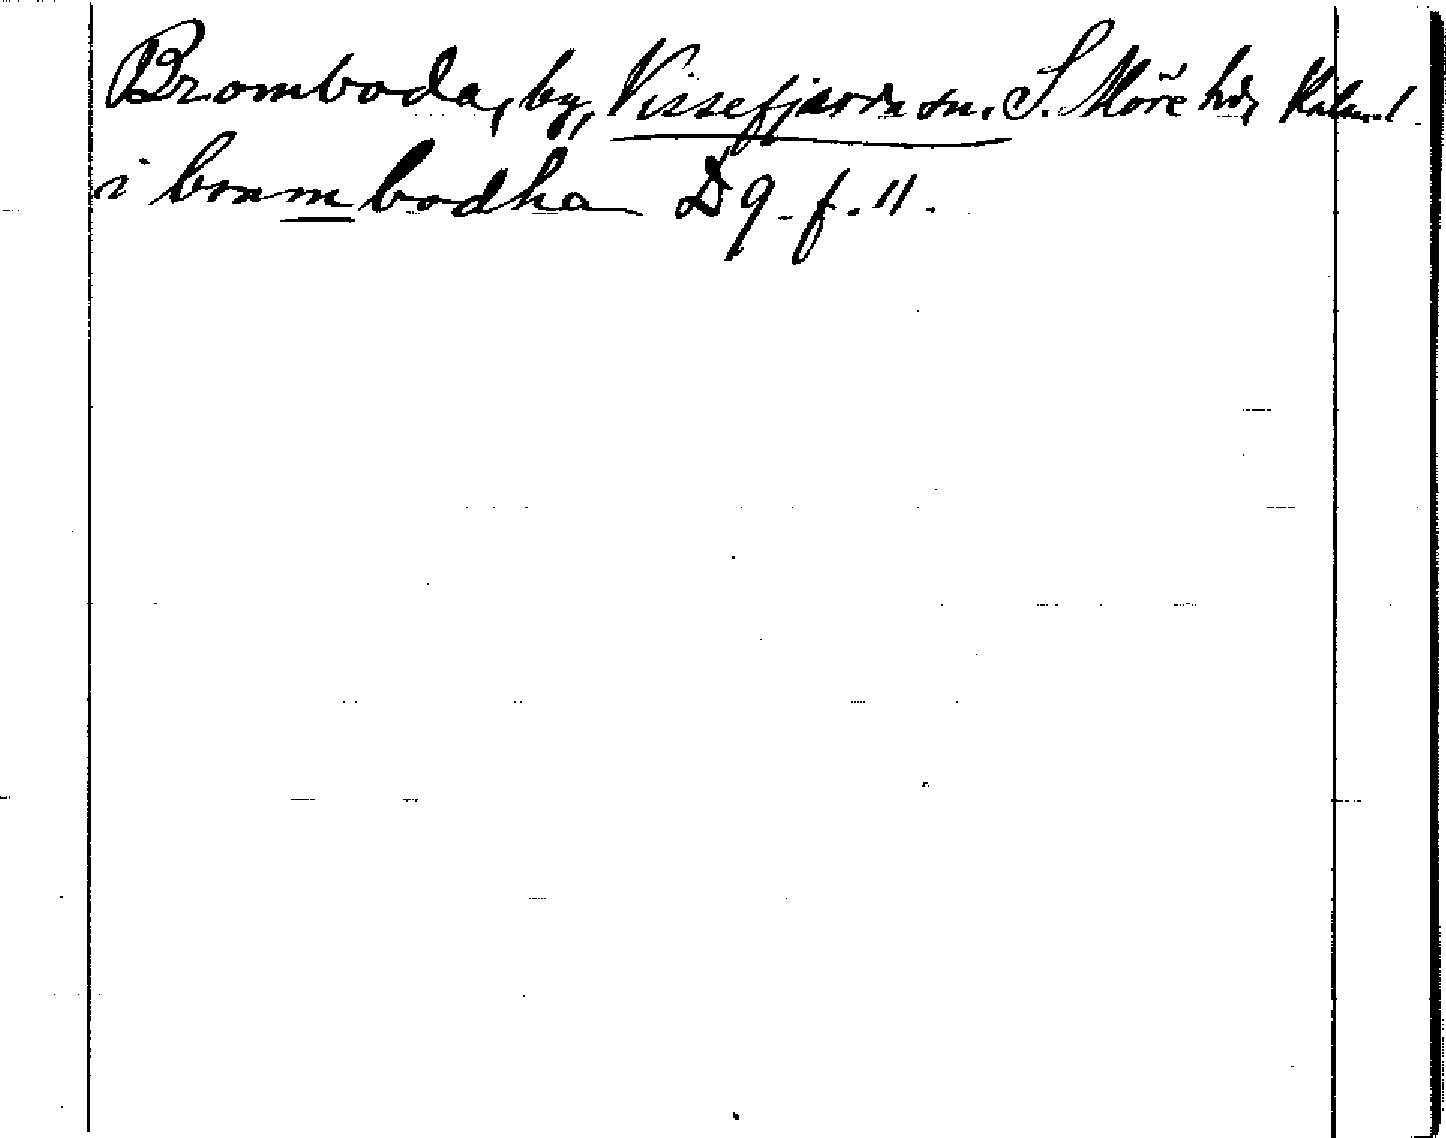 Bromboda, by, Vissefjärda sn. S. Möre hd, Kalm. l
i brambodha D 9. f. 11.